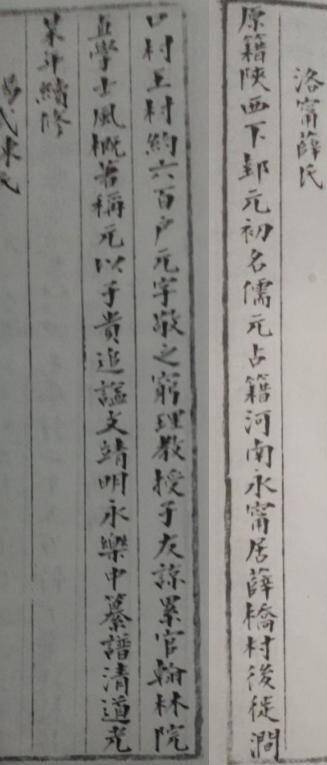 洛甯薛氏
原籍陝西下邽元初名儒元占籍河南永甯居薛橋村後徙澗
口村王村約六百戶元字敬之窮理教授子友諒累官翰林院
直學士風概著稱元以子貴追謚文靖明永樂中纂譜清道光
某年續修